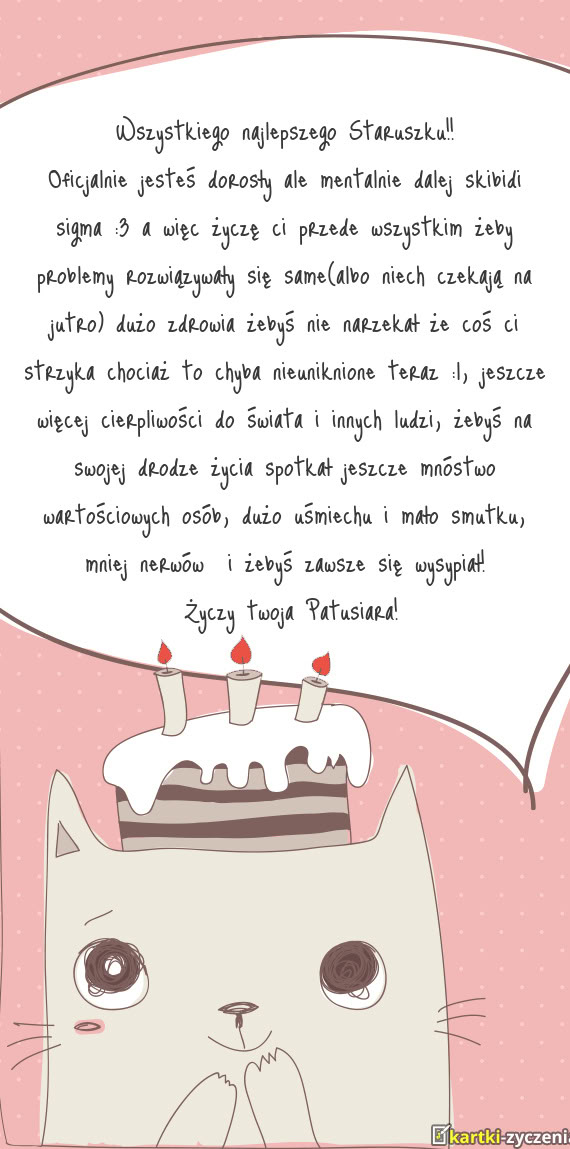 Wszystkiego najlepszego Staruszku!!
Oficjalnie jesteś dorosły ale mentalnie dalej skibidi
sigma :3 a więc życzę ci przede wszystkim żeby
problemy rozwiązywały się same(albo niech czekają na
jutro) dużo zdrowia żebyś nie narzekał że coś ci
strzyka chociaż to chyba nieuniknione teraz :|, jeszcze
więcej cierpliwości do świata i innych ludzi, żebyś na
swojej drodze życia spotkał jeszcze mnóstwo
wartościowych osób, dużo uśmiechu i mało smutku,
mniej nerwów i żebyś zawsze się wysypiał!
Życzy twoja Patusiara!
kartki-zyczenia